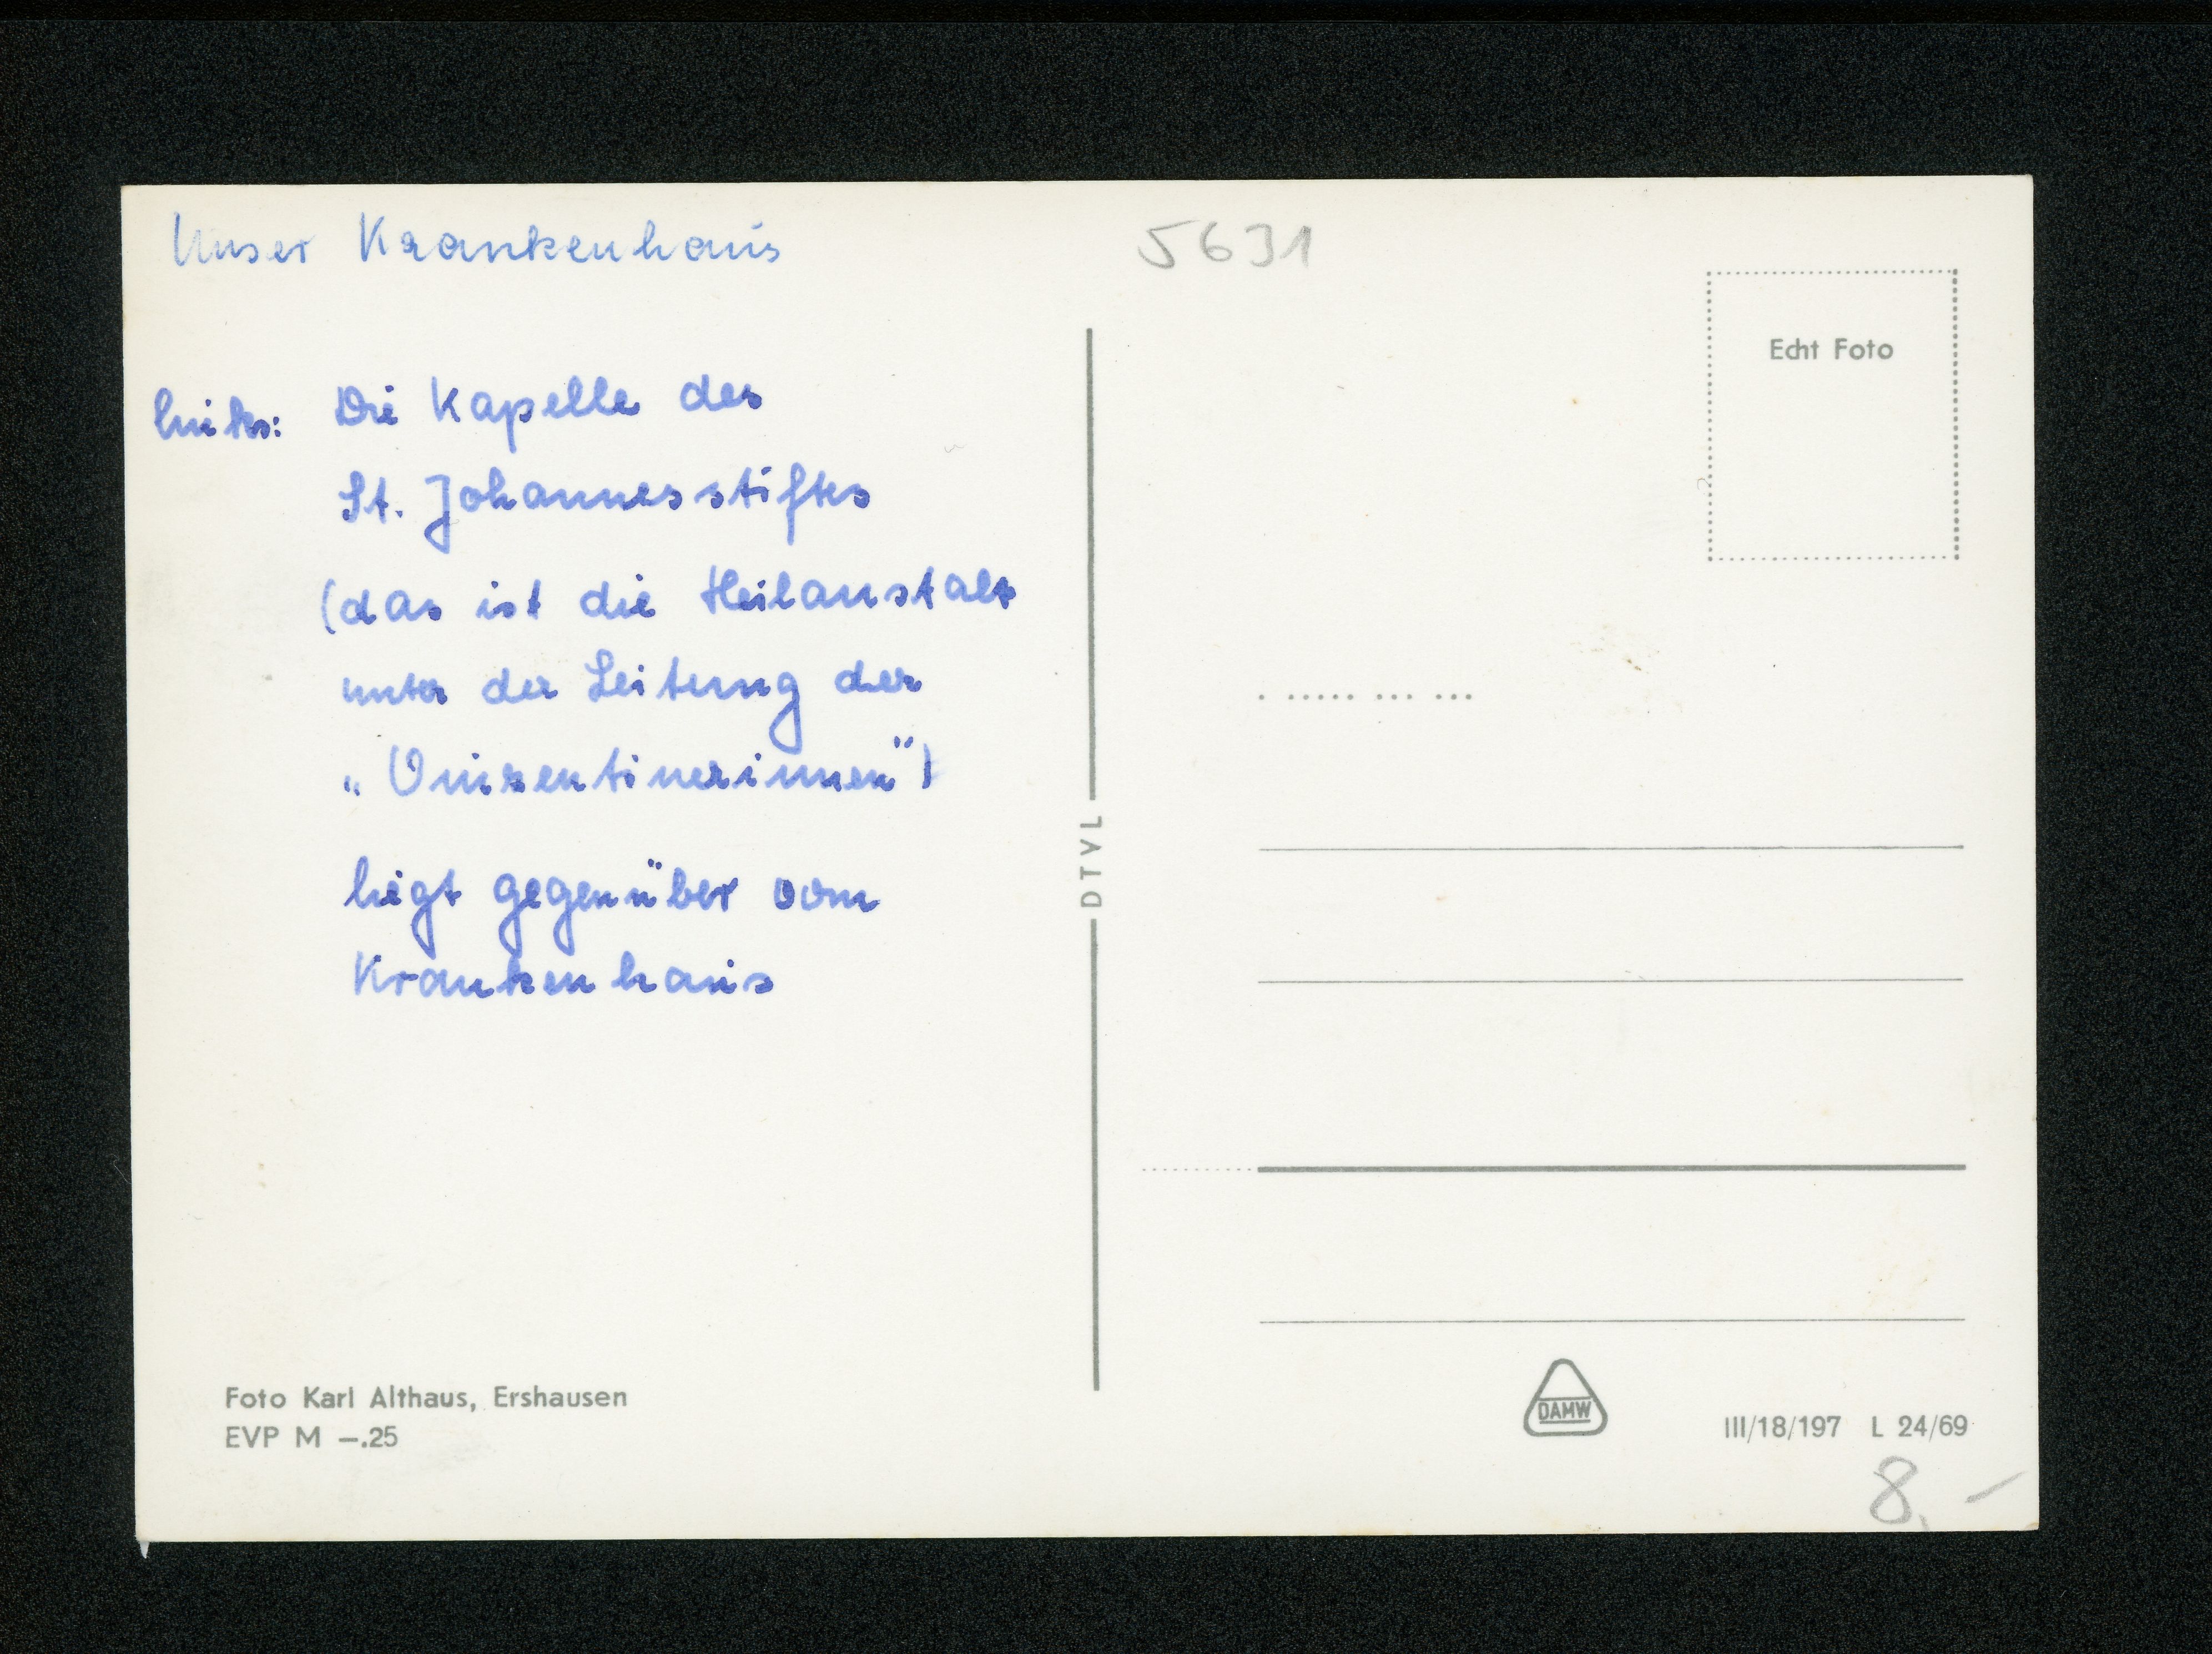 Unser Krankenhaus
links: Die Kapelle des
St. Johannesstiftes
(das ist die Heilanstalt
unter der Leitung der
„Vinzentinerinnen")
liegt gegenüber vom
Krankenhaus
Foto Karl Althaus, Ershausen
EVP M –.25
DTVL
5631
Echt Foto
DAMW
III/18/197 L 24/69
8,–